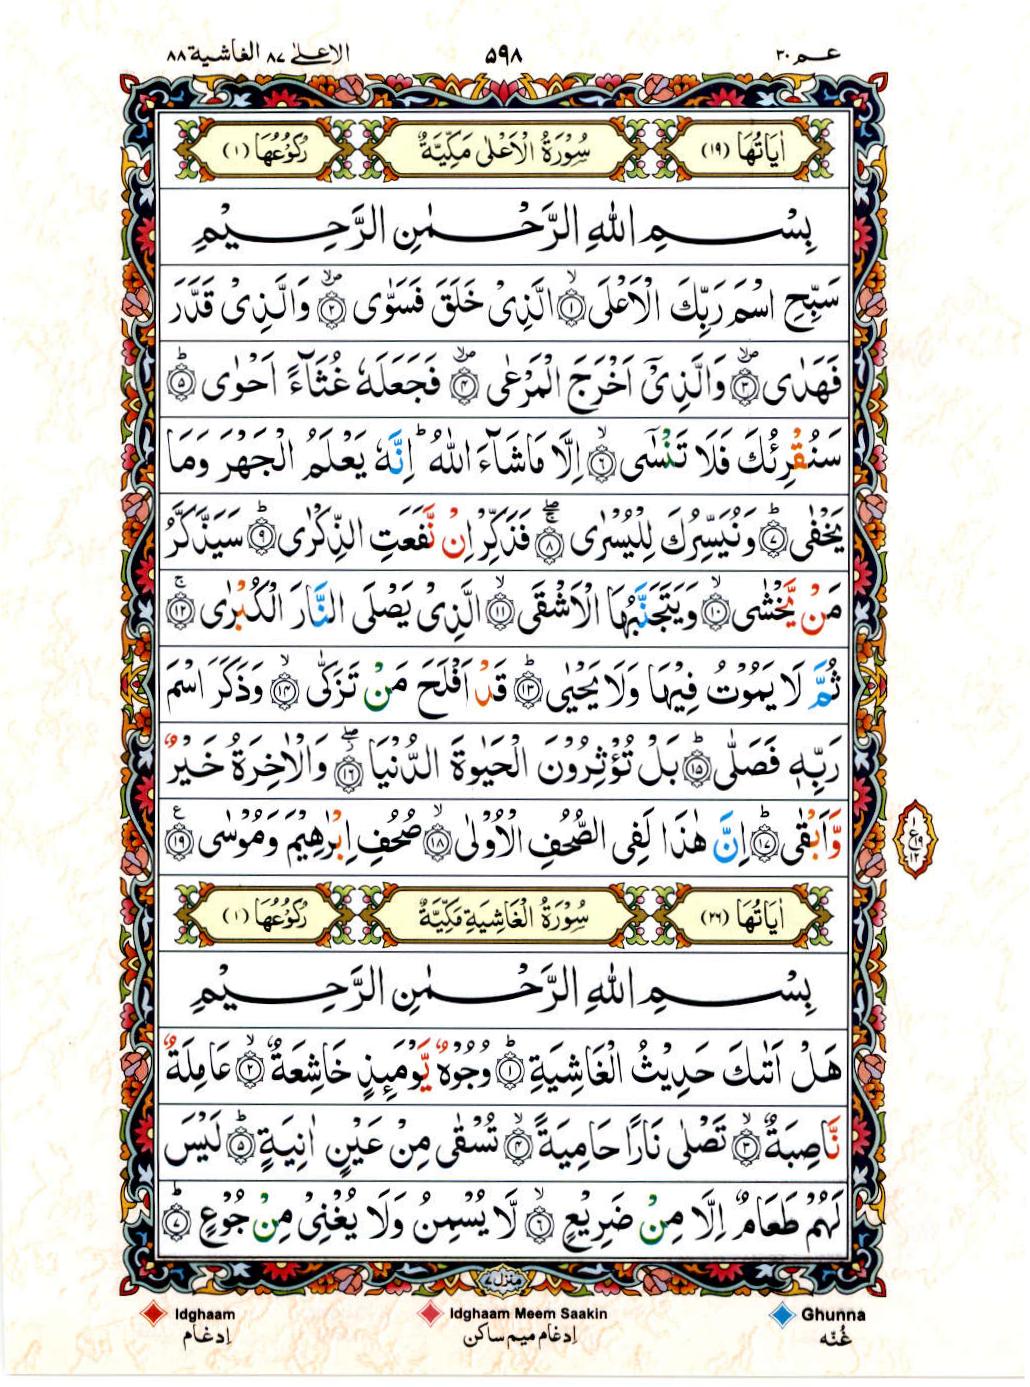 عـم ٣٠ ٥٩٨ الاعلىٰ ٨٧ الغاشية ٨٨
اٰيَاتُهَا (١٩) سُوْرَةُ الْاَعْلٰى مَكِّيَّةٌ رُكُوْعُهَا (١)
بِسْمِ اللّٰهِ الرَّحْمٰنِ الرَّحِيْمِ
سَبِّحِ اسْمَ رَبِّكَ الْاَعْلَىۙ ۝١ الَّذِىْ خَلَقَ فَسَوّٰى ۝٢ وَالَّذِىْ قَدَّرَ
فَهَدٰى ۝٣ وَالَّذِىْٓ اَخْرَجَ الْمَرْعٰى ۝٤ فَجَعَلَهٗ غُثَآءً اَحْوٰىؕ ۝٥
سَنُقْرِئُكَ فَلَا تَنْسٰٓىۙ ۝٦ اِلَّا مَا شَآءَ اللّٰهُؕ اِنَّهٗ يَعْلَمُ الْجَهْرَ وَمَا
يَخْفٰىؕ ۝٧ وَنُيَسِّرُكَ لِلْيُسْرٰى ۝٨ فَذَكِّرْ اِنْ نَّفَعَتِ الذِّكْرٰىؕ ۝٩ سَيَذَّكَّرُ
مَنْ يَّخْشٰىۙ ۝١٠ وَيَتَجَنَّبُهَا الْاَشْقَىۙ ۝١١ الَّذِىْ يَصْلَى النَّارَ الْكُبْرٰىۚ ۝١٢
ثُمَّ لَا يَمُوْتُ فِيْهَا وَلَا يَحْيٰىؕ ۝١٣ قَدْ اَفْلَحَ مَنْ تَزَكّٰىۙ ۝١٤ وَذَكَرَ اسْمَ
رَبِّهٖ فَصَلّٰىؕ ۝١٥ بَلْ تُؤْثِرُوْنَ الْحَيٰوةَ الدُّنْيَا ۝١٦ وَالْاٰخِرَةُ خَيْرٌ
وَّاَبْقٰىؕ ۝١٧ اِنَّ هٰذَا لَفِى الصُّحُفِ الْاُوْلٰىۙ ۝١٨ صُحُفِ اِبْرٰهِيْمَ وَمُوْسٰى ۝١٩
١ ع ١٩ ١٢
اٰيَاتُهَا (٢٦) سُوْرَةُ الْغَاشِيَةِ مَكِّيَّةٌ رُكُوْعُهَا (١)
بِسْمِ اللّٰهِ الرَّحْمٰنِ الرَّحِيْمِ
هَلْ اَتٰىكَ حَدِيْثُ الْغَاشِيَةِؕ ۝١ وُجُوْهٌ يَّوْمَىِٕذٍ خَاشِعَةٌۙ ۝٢ عَامِلَةٌ
نَّاصِبَةٌۙ ۝٣ تَصْلٰى نَارًا حَامِيَةًۙ ۝٤ تُسْقٰى مِنْ عَيْنٍ اٰنِيَةٍؕ ۝٥ لَيْسَ
لَهُمْ طَعَامٌ اِلَّا مِنْ ضَرِيْعٍۙ ۝٦ لَّا يُسْمِنُ وَلَا يُغْنِىْ مِنْ جُوْعٍؕ ۝٧
منزل ٧
Idghaam Idghaam Meem Saakin Ghunna
اِدغام اِدغام ميم ساكن غُنّه